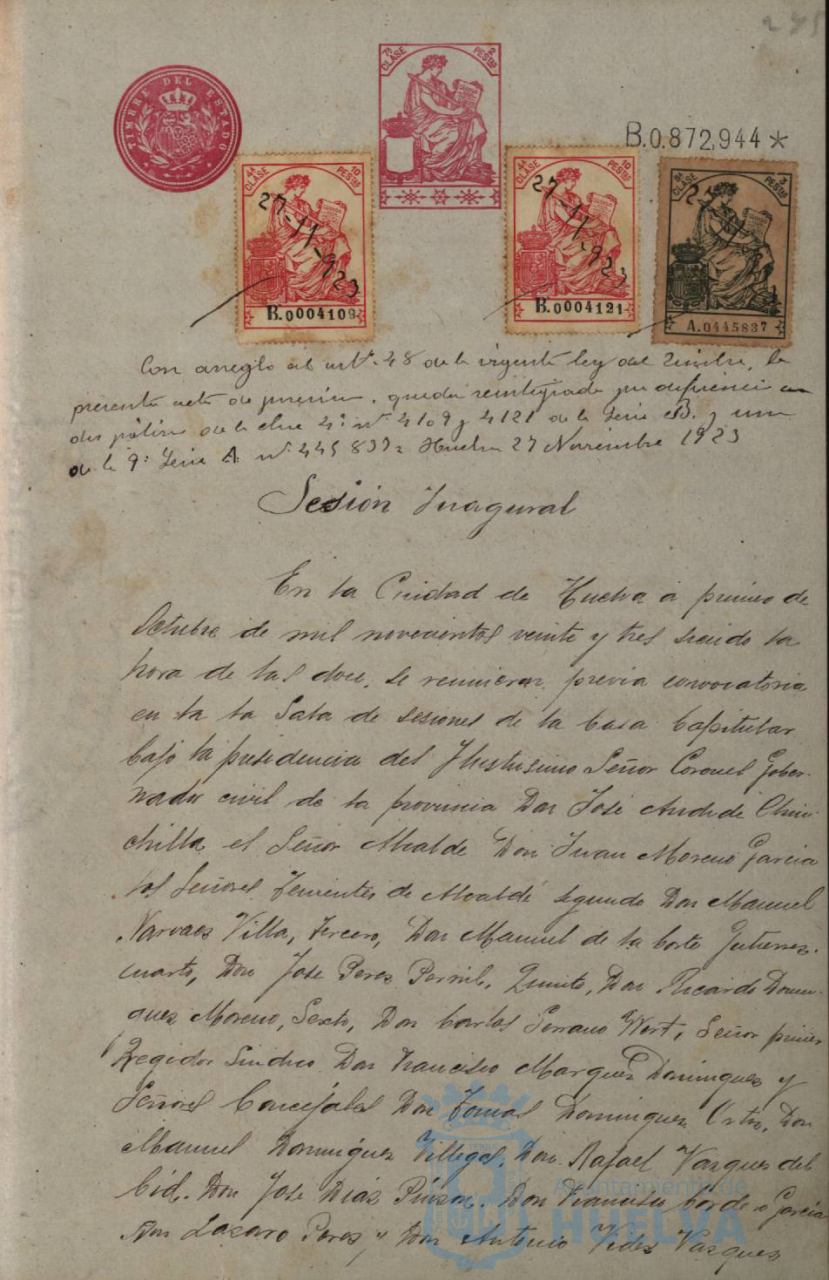 245
TIMBRE DEL ESTADO
7ª CLASE 2 PESTAS
B.0.872,944 *
4ª CLASE 10 PESTAS
27-11-923
B.0004109
4ª CLASE 10 PESTAS
27-11-923
B.0004121
CLASE 3 PESTAS
A.0445837
Con arreglo al artº. 48 de la vigente ley del Timbre, la
presente acta de posesión, queda reintegrada por diferencia con
dos pólizas de la clase 4ª nº 4109 y 4121 de la Serie B. y una
de la 9ª Serie A. nº 445837= Huelva 27 Noviembre 1923
Sesión Inagural
En la Ciudad de Huelva á primero de
Octubre de mil novecientos veinte y tres siendo la
hora de las doce, se reunieron previa convocatoria
en la la Sala de sesiones de la Casa Capitular
bajo la presidencia del Ilustrisimo Señor Coronel Gober-
nador civil de la provincia Don José Andrade Chin-
chilla, el Señor Alcalde Don Juan Moreno Garcia
los Señores Tenientes de Alcalde segundo Don Manuel
Narvaes Villa, tercero, Don Manuel de la Corte Gutierrez.
cuarto, Don José Peres Pernil, Quinto, Don Ricardo Domin-
guez Moreno, Sexto, Don Carlos Serrano Wert, Señor primer
Regidor Sindico Don Francisco Marquez Dominguez y
Señores Concejales Don Tomas Dominguez Ortiz, Don
Manuel Dominguez Villegas, Don Rafael Vazques del
Cid. Don José Diaz Pinzon. Don Francisco Cordero Garcia
Don Lazaro Peres y Don Antonio Vides Vazques
Ayuntamiento de
HUELVA